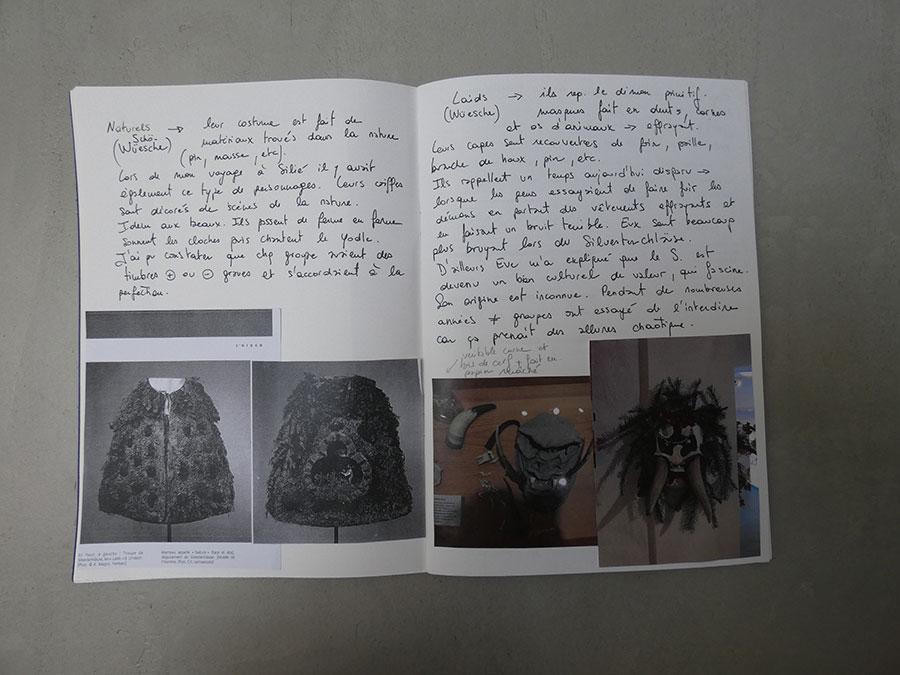 Naturels → leur costume est fait de
Schö- matériaux trouvés dans la nature
(Wüesche) (pin, mousse, etc).
Lors de mon voyage à il y avait
également ce type de personnages. Leurs coiffes
sont décorés de scènes de la nature.
Idem aux beaux. Ils passent de ferme en ferme
sonnent les cloches puis chantent le Yodle.
J'ai pu constater que chq groupe avaient des
timbres + ou - graves et s'accordaient à la
perfection.
Laids → ils rep. le démon primitif.
(Wüesche) masques fait en dents, cornes
et os d'animaux → effrayant.
Leurs capes sont recouvertes de foin, paille,
branche de houx, pin, etc.
Ils rappellent un temps aujourd'hui disparu →
lorsque les gens essayaient de faire fuir les
démons en portant des vêtements effrayants et
en faisant un bruit terrible. Eux sont beaucoup
plus bruyant lors du Silvesterchläuse.
D'ailleurs Eve m'a expliqué que le S. est
devenu un bien culturel de valeur, qui fascine.
Son origine est inconnue. Pendant de nombreuses
années ≠ groupes ont essayé de l'interdire
car ça prenait des allures chaotique.
véritable corne et
bois de cerf + fait en
papier mâché